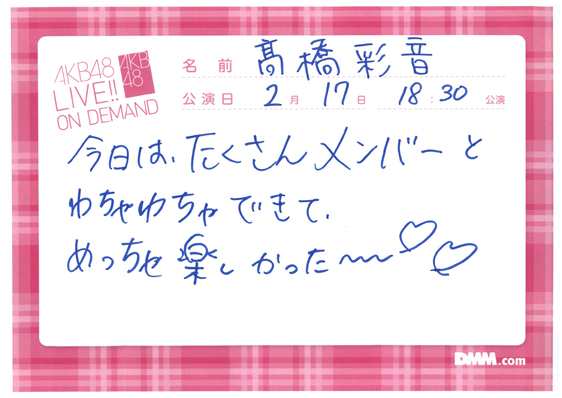 AKB48
LIVE!!
ON DEMAND
AKB
48
名前 髙橋彩音
公演日 2月17日 18:30 公演
今日は、たくさんメンバーと
わちゃわちゃできて、
めっちゃ楽しかった〜〜♡♡
DMM.com